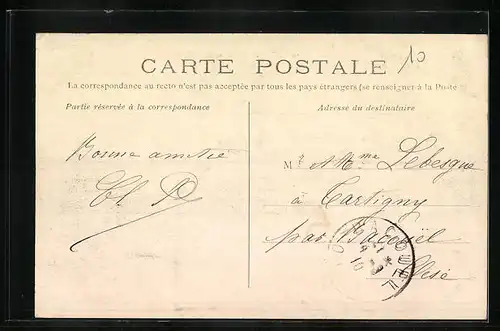 CARTE POSTALE
10
La correspondance au recto n'est pas acceptée par tous les pays étrangers (se renseigner à la Poste
Partie réservée à la correspondance
Adresse du destinataire
Bonne amitié
Cl P
M r & Mme Lebesgue
à Tartigny
par Bacouël
Oise